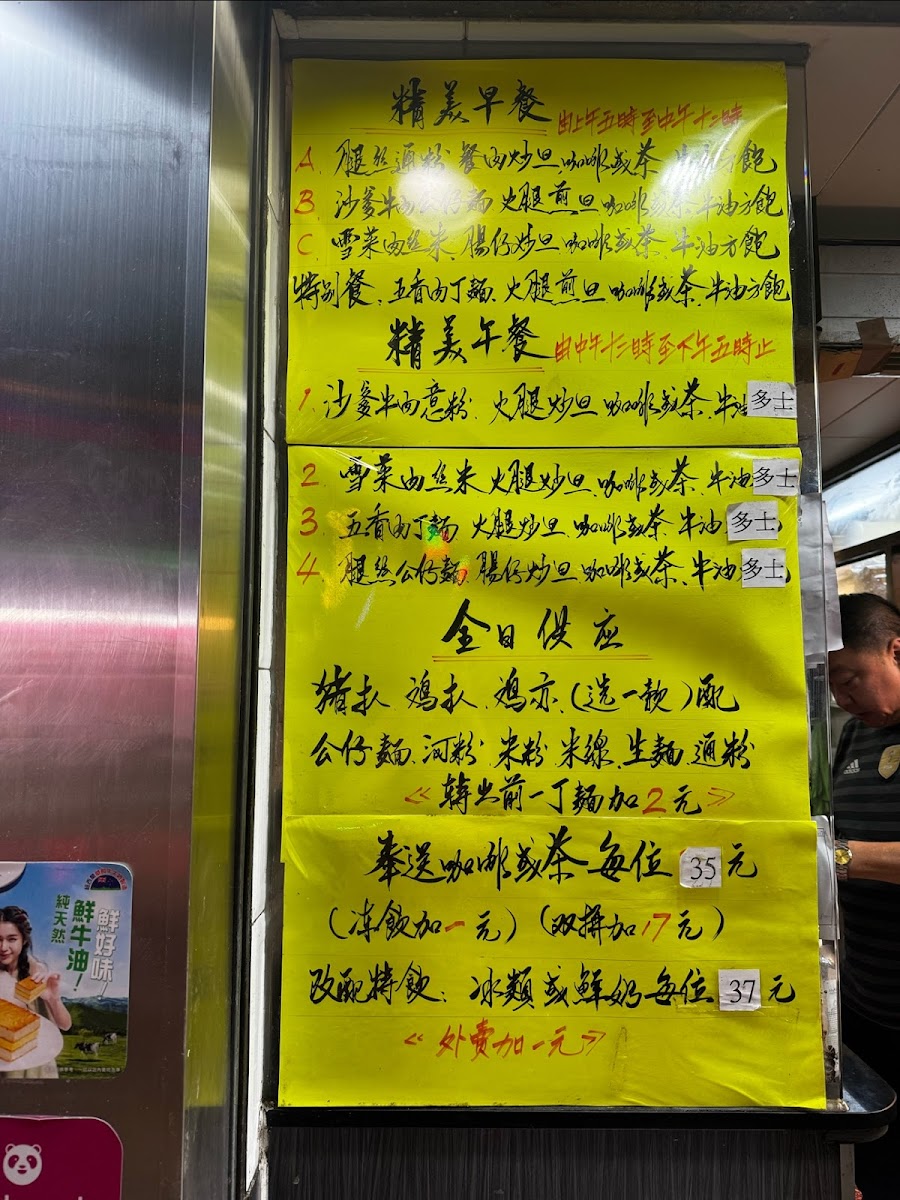 精美早餐 由上午五時至中午十二時
A. 腿丝通粉 餐肉炒旦.咖啡或茶 牛油方飽
B. 沙爹牛肉公仔麵 火腿前旦 咖啡或茶.牛油方飽
C. 雪菜肉丝米 腸仔炒旦.咖啡或茶.牛油方飽
特别餐:五香肉丁麵.火腿前旦咖啡或茶.牛油方飽
精美午餐 由中午十二時至下午五時止
1. 沙爹牛肉意粉. 火腿炒旦 咖啡或茶.牛油多士
2 雪菜肉丝米 火腿炒旦.咖啡或茶.牛油多士
3 五香肉丁麵 火腿炒旦.咖啡或茶.牛油多士
4. 腿丝公仔麵 腸仔炒旦.咖啡或茶.牛油多士
全日供应
猪扒 鸡扒.鸡亦.(选一款)配
公仔麵.河粉 米粉 米線.生麵 通粉
《轉出前一丁麵加2元》
奉送咖啡或茶每位35元
(冻飲加一元)(双拼加17元)
改配特飲:冰類或鮮奶每位37元
《外賣加一元》
鮮好味
鮮牛油!
純天然